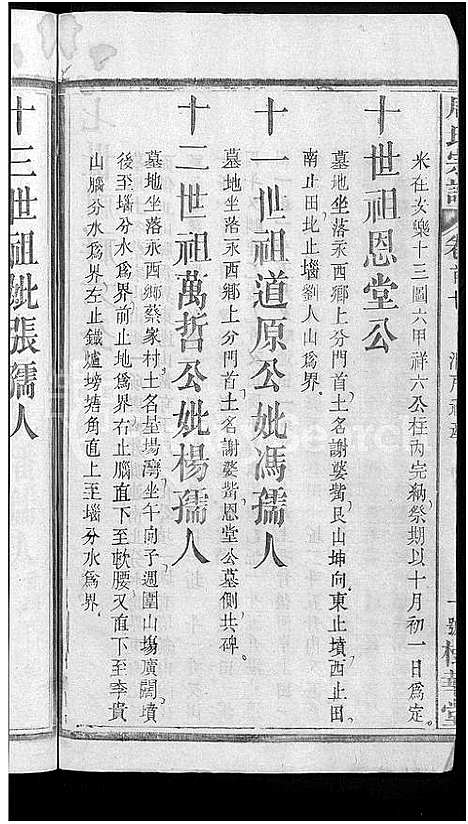 周氏宗譜
卷首
米在安樂十三圖六甲祥六公柱內完納祭期以十月初一日為定
十世祖恩堂公
墓地坐落汞西鄉上分門首土名謝婆嘴艮山坤向東止墳西止田
南止田北止墦劉人山為界
十一世祖道原公妣馮孺人
墓地坐落汞西鄉上分門首土名謝婆嘴恩堂公墓側共碑
十二世祖萬哲公妣楊孺人
墓地坐落汞西鄉蔡家村土名屋場灣坐午向子週圍山塲廣濶墳
後至墦分水為界前止地為界右止腦直下至軟腰又直下至李貴
山腦分水為界左止鐵爐塝塘角直上至墦分水為界
十三世祖妣張孺人